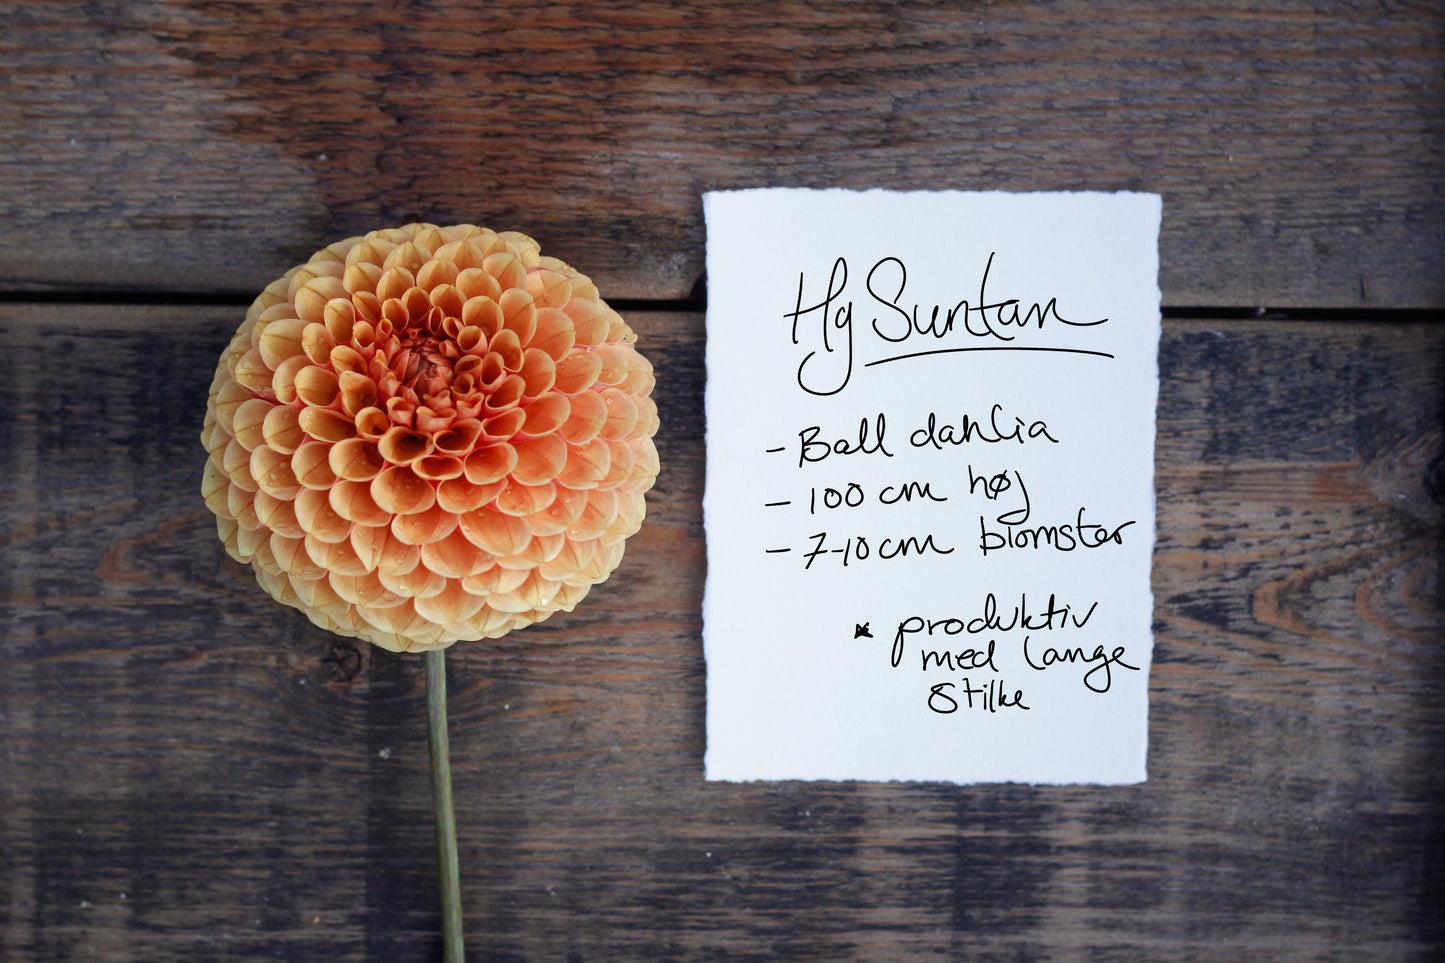 Hg Suntan
- Ball dahlia
- 100 cm høj
- 7-10 cm blomster
* produktiv
med lange
stilke